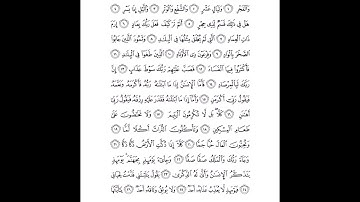 وَالْفَجْرِ ١ وَلَيَالٍ عَشْرٍ ٢ وَالشَّفْعِ وَالْوَتْرِ ٣ وَاللَّيْلِ إِذَا يَسْرِ ٤
هَلْ فِي ذَٰلِكَ قَسَمٌ لِّذِي حِجْرٍ ٥ أَلَمْ تَرَ كَيْفَ فَعَلَ رَبُّكَ بِعَادٍ ٦ إِرَمَ
ذَاتِ الْعِمَادِ ٧ الَّتِي لَمْ يُخْلَقْ مِثْلُهَا فِي الْبِلَٰدِ ٨ وَثَمُودَ الَّذِينَ جَابُوا
الصَّخْرَ بِالْوَادِ ٩ وَفِرْعَوْنَ ذِي الْأَوْتَادِ ١٠ الَّذِينَ طَغَوْا فِي الْبِلَٰدِ ١١
فَأَكْثَرُوا فِيهَا الْفَسَادَ ١٢ فَصَبَّ عَلَيْهِمْ رَبُّكَ سَوْطَ عَذَابٍ ١٣ إِنَّ
رَبَّكَ لَبِالْمِرْصَادِ ١٤ فَأَمَّا الْإِنسَٰنُ إِذَا مَا ابْتَلَىٰهُ رَبُّهُ فَأَكْرَمَهُ وَنَعَّمَهُ
فَيَقُولُ رَبِّي أَكْرَمَنِ ١٥ وَأَمَّا إِذَا مَا ابْتَلَىٰهُ فَقَدَرَ عَلَيْهِ رِزْقَهُ فَيَقُولُ رَبِّي
أَهَٰنَنِ ١٦ كَلَّا بَل لَّا تُكْرِمُونَ الْيَتِيمَ ١٧ وَلَا تَحَٰضُّونَ عَلَىٰ
طَعَامِ الْمِسْكِينِ ١٨ وَتَأْكُلُونَ التُّرَاثَ أَكْلًا لَّمًّا ١٩
وَتُحِبُّونَ الْمَالَ حُبًّا جَمًّا ٢٠ كَلَّا إِذَا دُكَّتِ الْأَرْضُ دَكًّا دَكًّا ٢١
وَجَاءَ رَبُّكَ وَالْمَلَكُ صَفًّا صَفًّا ٢٢ وَجِا۟يءَ يَوْمَئِذٍ بِجَهَنَّمَ يَوْمَئِذٍ
يَتَذَكَّرُ الْإِنسَٰنُ وَأَنَّىٰ لَهُ الذِّكْرَىٰ ٢٣ يَقُولُ يَٰلَيْتَنِي قَدَّمْتُ لِحَيَاتِي
٢٤ فَيَوْمَئِذٍ لَّا يُعَذِّبُ عَذَابَهُ أَحَدٌ ٢٥ وَلَا يُوثِقُ وَثَاقَهُ أَحَدٌ ٢٦ يَٰأَيَّتُهَا